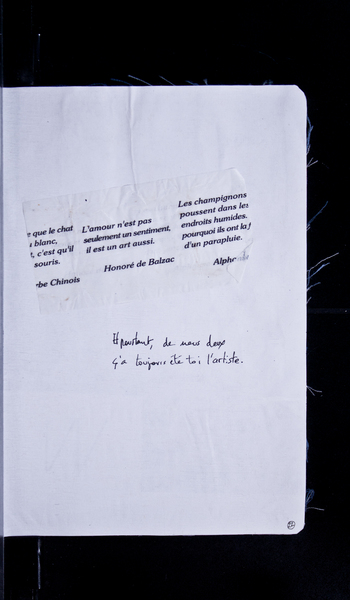 que le chat
blanc,
, c'est qu'il
souris.
be Chinois
L'amour n'est pas
seulement un sentiment,
il est un art aussi.
Honoré de Balzac
Les champignons
poussent dans les
endroits humides.
pourquoi ils ont la f
d'un parapluie.
Alph
Et pourtant, de nous deux
ç'a toujours été toi l'artiste.